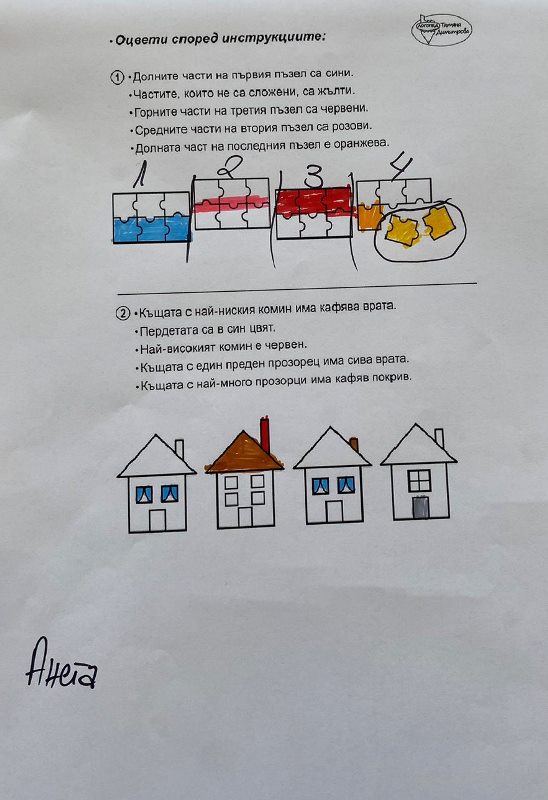 • Оцвети според инструкциите:
Лого
логопед Тамяна
Димитрова
① • Долните части на първия пъзел са сини.
• Частите, които не са сложени, са жълти.
• Горните части на третия пъзел са червени.
• Средните части на втория пъзел са розови.
• Долната част на последния пъзел е оранжева.
1 2 3 4
② • Къщата с най-ниския комин има кафява врата.
• Пердетата са в син цвят.
• Най-високият комин е червен.
• Къщата с един преден прозорец има сива врата.
• Къщата с най-много прозорци има кафяв покрив.
Анета